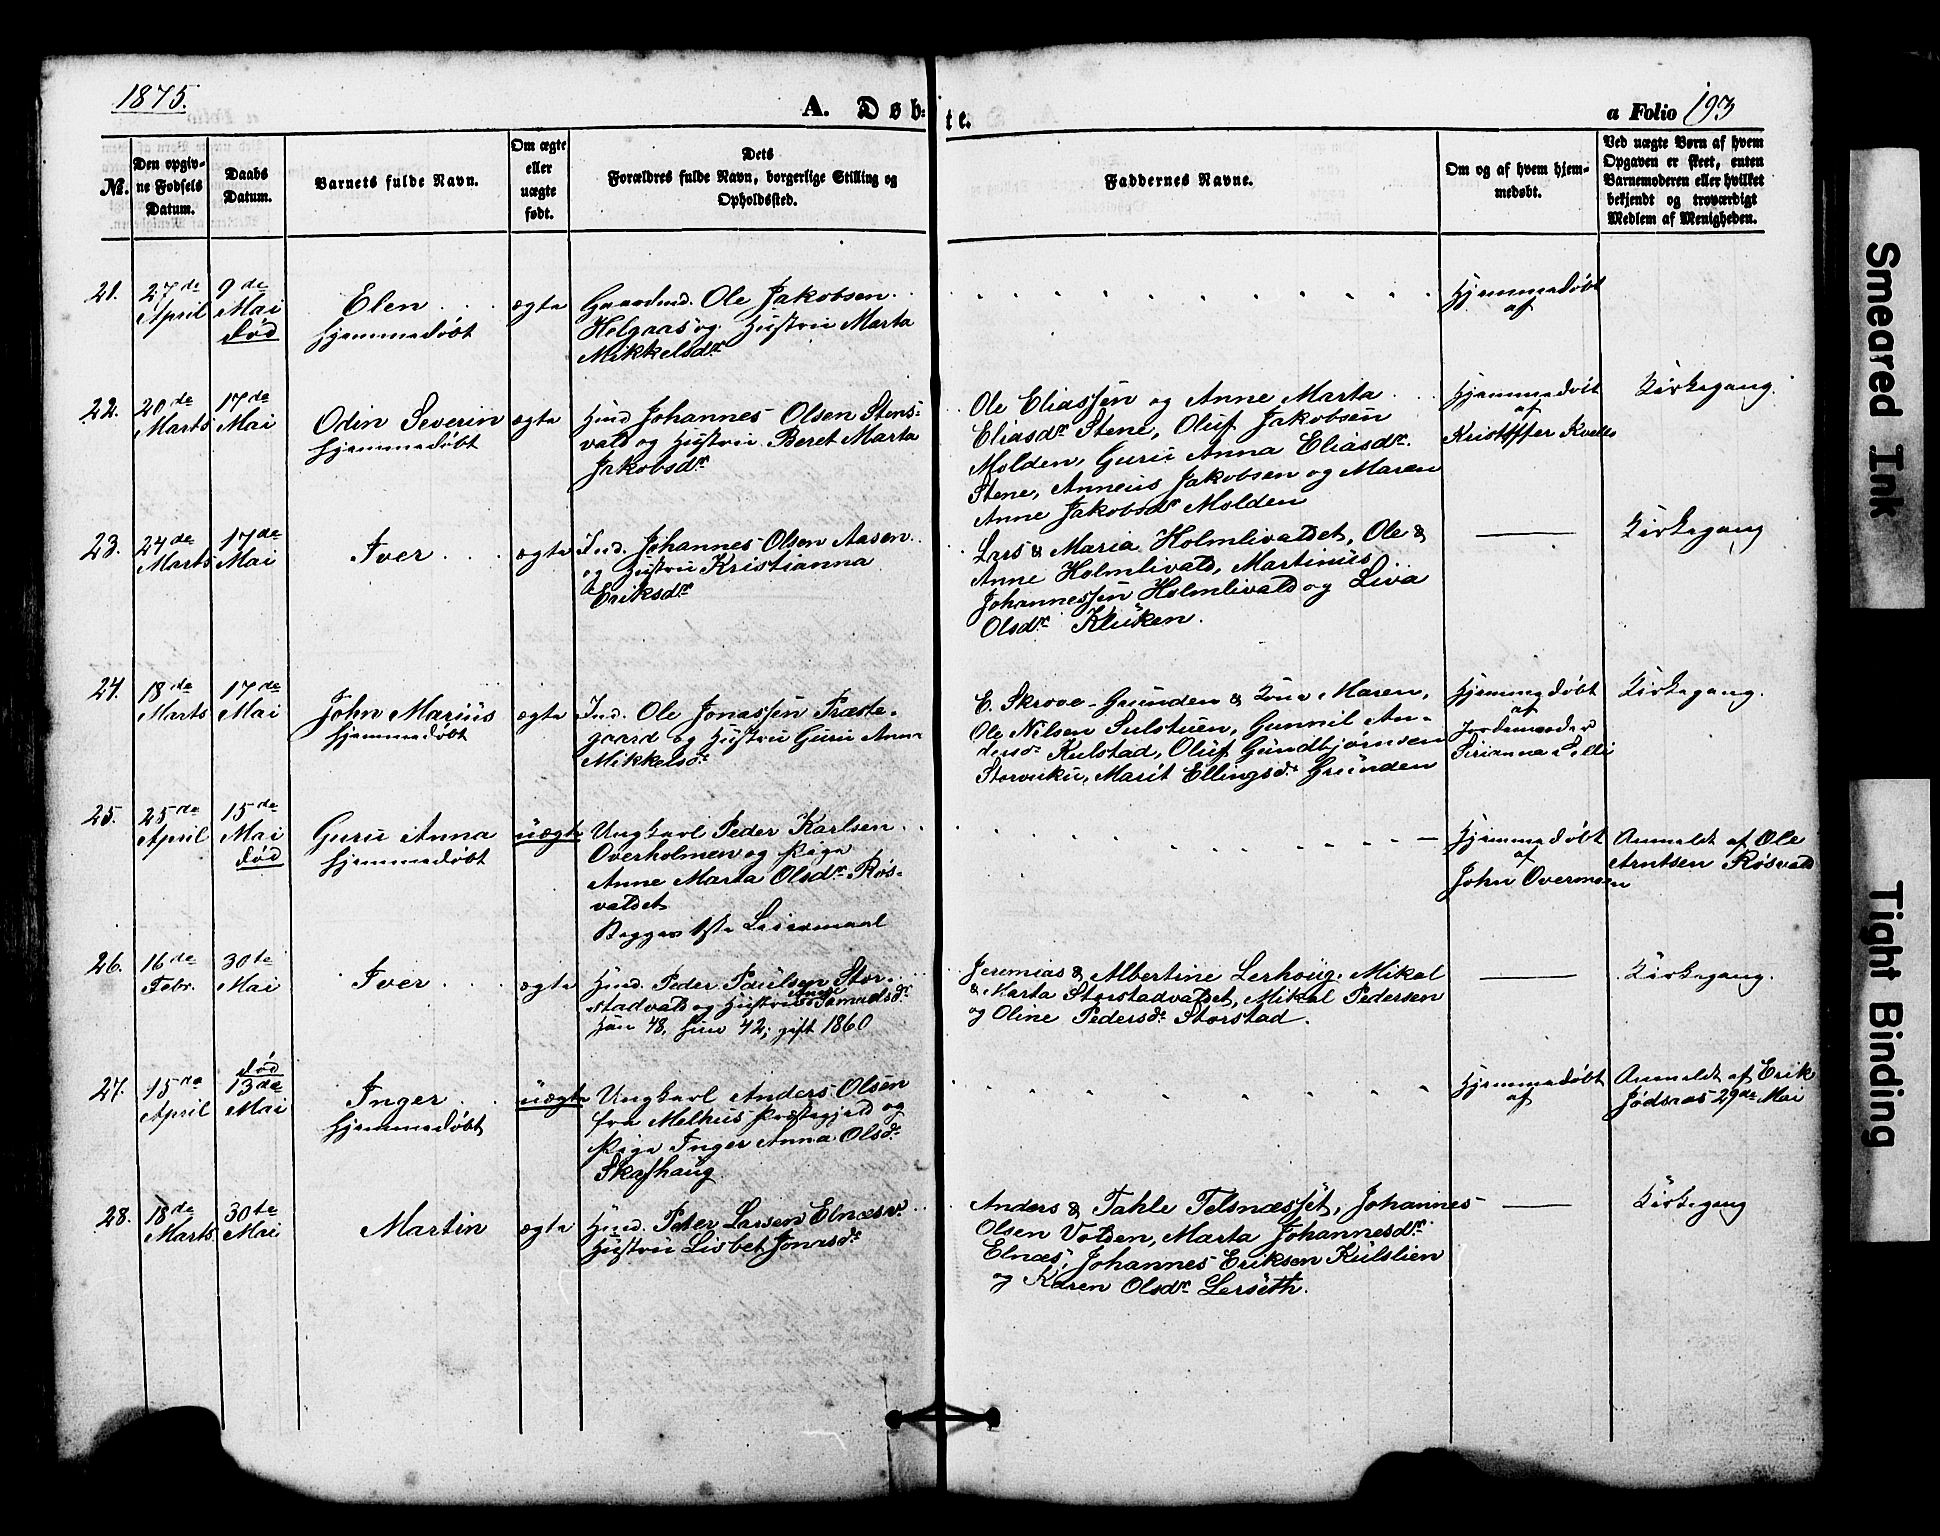 1875.
A. Døb:
te.
a Folio 193
No.
Den opgiv-
ne Fødsels
Datum.
Daabs
Datum.
Barnets fulde Navn.
Om ægte
eller
uægte
født.
Dets
Forældres fulde Navn, borgerlige Stilling og
Opholdssted.
Faddernes Navne.
Om og af hvem hjem-
medøbt.
Ved uægte Børn af hvem
Opgaven er skeet, enten
Barnemoderen eller hvilket
bekjendt og troværdigt
Medlem af Menigheden.
21.
27de
April
9de
Mai
død
Elen
hjemmedøbt
ægte
Gaardmd. Ole Jakobsen
Helgaas og Hustru Marta
Mikkelsdr
Hjemmedøbt
af
22.
20de
Marts
17de
Mai
Odin Severin
hjemmedøbt
ægte
Husmd Johannes Olsen Stens-
vald og Hustru Beret Marta
Jakobsdr
Ole Eliassen og Anne Marta
Eliasdr Stene, Oluf Jakobsen
Molden, Guru Anna Eliasdr
Stene, Anneus Jakobsen og Maren
Anne Jakobsdr Molden
Hjemmedøbt
af
Kristoffer Kvello
Kirkegang.
23.
24de
Marts
17de
Mai
Iver
ægte
Ind. Johannes Olsen Aasen
og Hustru Kristianna
Eriksdr
Lars & Maria Holmlivaldet, Ole &
Anne Holmlivald, Martinus
Johannessen Holmlivald og Liva
Olsdr Kluken.
Kirkegang
24.
18de
Marts
17de
Mai
John Marius
hjemmedøbt
ægte
Ind. Ole Jonassen Præste-
gaard og Hustru Guru Anna
Mikkelsdr
E. Skrove-Grunden & Kone Maren,
Ole Nilsen Sulstuen, Gunnil An-
dersdr Kulstad, Oluf Gundbjørnsen
Storvuku, Marit Ellingsdr Grunden
Hjemmedøbt
af
Jordemoder
Kirkegang.
25.
25de
April
15de
Mai
død
Guru Anna
hjemmedøbt
uægte
Ungkarl Peder Karlsen
Overholmen og Pige
Anne Marta Olsdr Røs-
valdet
Begges 1ste Leiermaal
Hjemmedøbt
af
John Overmoen
Anmeldt af Ole
Arntsen Røsvald
26.
16de
Febr.
30te
Mai
Iver
ægte
Husmd. Peder Paulsen Stor-
stadvald og Hustru
han 48, hun 42, gift 1860
Jeremias & Albertine Lerhaug, Mikal
& Marta Storstadvaldet, Mikal Pedersen
og Oline Pedersdr Storstad.
Kirkegang.
27.
15de
April
død
13de
Mai
Inger
hjemmedøbt
uægte
Ungkarl Anders Olsen
fra Melhus Præstegjeld og
Pige Inger Anna Olsdr
Skafhaug
Hjemmedøbt
af
Anmeldt af Erik
Jødsaas 29de Mai
28.
18de
Marts
30te
Mai
Martin
ægte
Husmd. Peter Larsen Elnæs v.
Hustru Lisbet Jonasdr
Anders & Tahle Telsnæsset, Johannes
Olsen Volden, Marta Johannesdr
Elnæs, Johannes Eriksen Kulslien
og Karen Olsdr Lerseth.
Kirkegang
Smeared Ink
Tight Binding